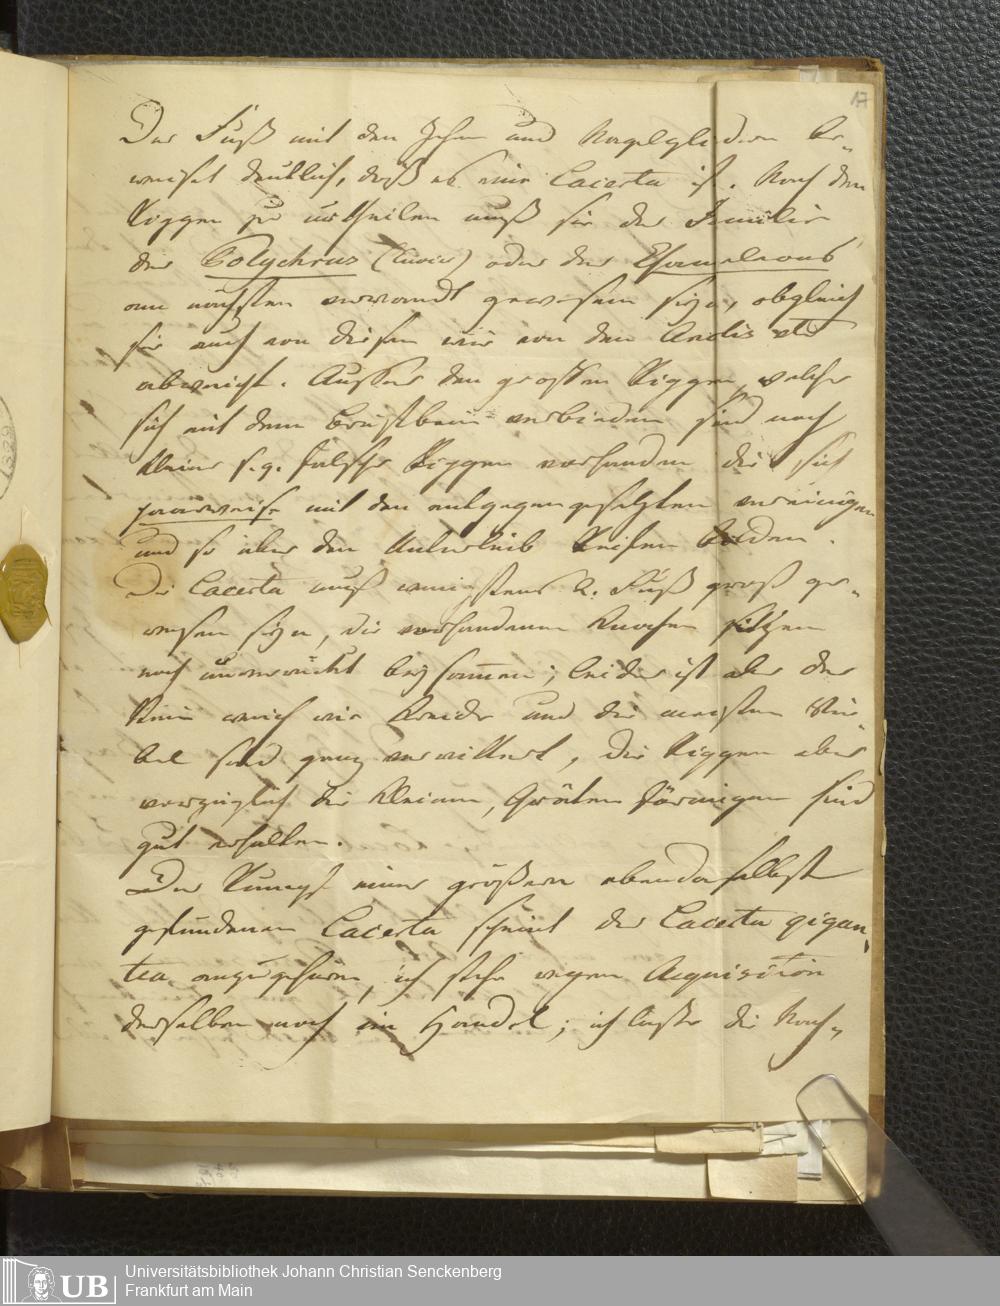 17
Der Fuß mit den Zehen und Nagelgliedern be-
weiset deutlich, daß es eine Lacerta ist. Nach den
Rippen zu urtheilen muß sie der Familie
der Polychrus (Cuvier) oder des Chamaeleons
am nächsten verwandt gewesen seyn, obgleich
sie auch von diesen wie von den Anolis etc
abweicht. Ausser den grossen Rippen, welche
sich mit dem Brustbein verbinden sind noch
kleine s.g. falsche Rippen vorhanden die sich
paarweise mit den entgegengesetzten vereinigen
und so über den Unterleib Reifen bilden.
Die Lacerta muß wenigstens 2. Fuß groß ge-
wesen seyn, die vorhandenen Knochen sitzen
noch unverrückt beysammen; leider ist aber der
Stein weich wie Kreide und die meisten Wir-
bel sind ganz verwittert, die Rippen aber
vorzüglich die kleinen, Gräten förmigen sind
gut erhalten.
Der Rumpf einer größern ebendaselbst
gefundenen Lacerta scheint der Lacerta gigan-
tea anzugehören, ich stehe wegen Acquisition
derselben noch im Handel; ich lasse die Kno-
1829
Universitätsbibliothek Johann Christian Senckenberg
Frankfurt am Main
UB